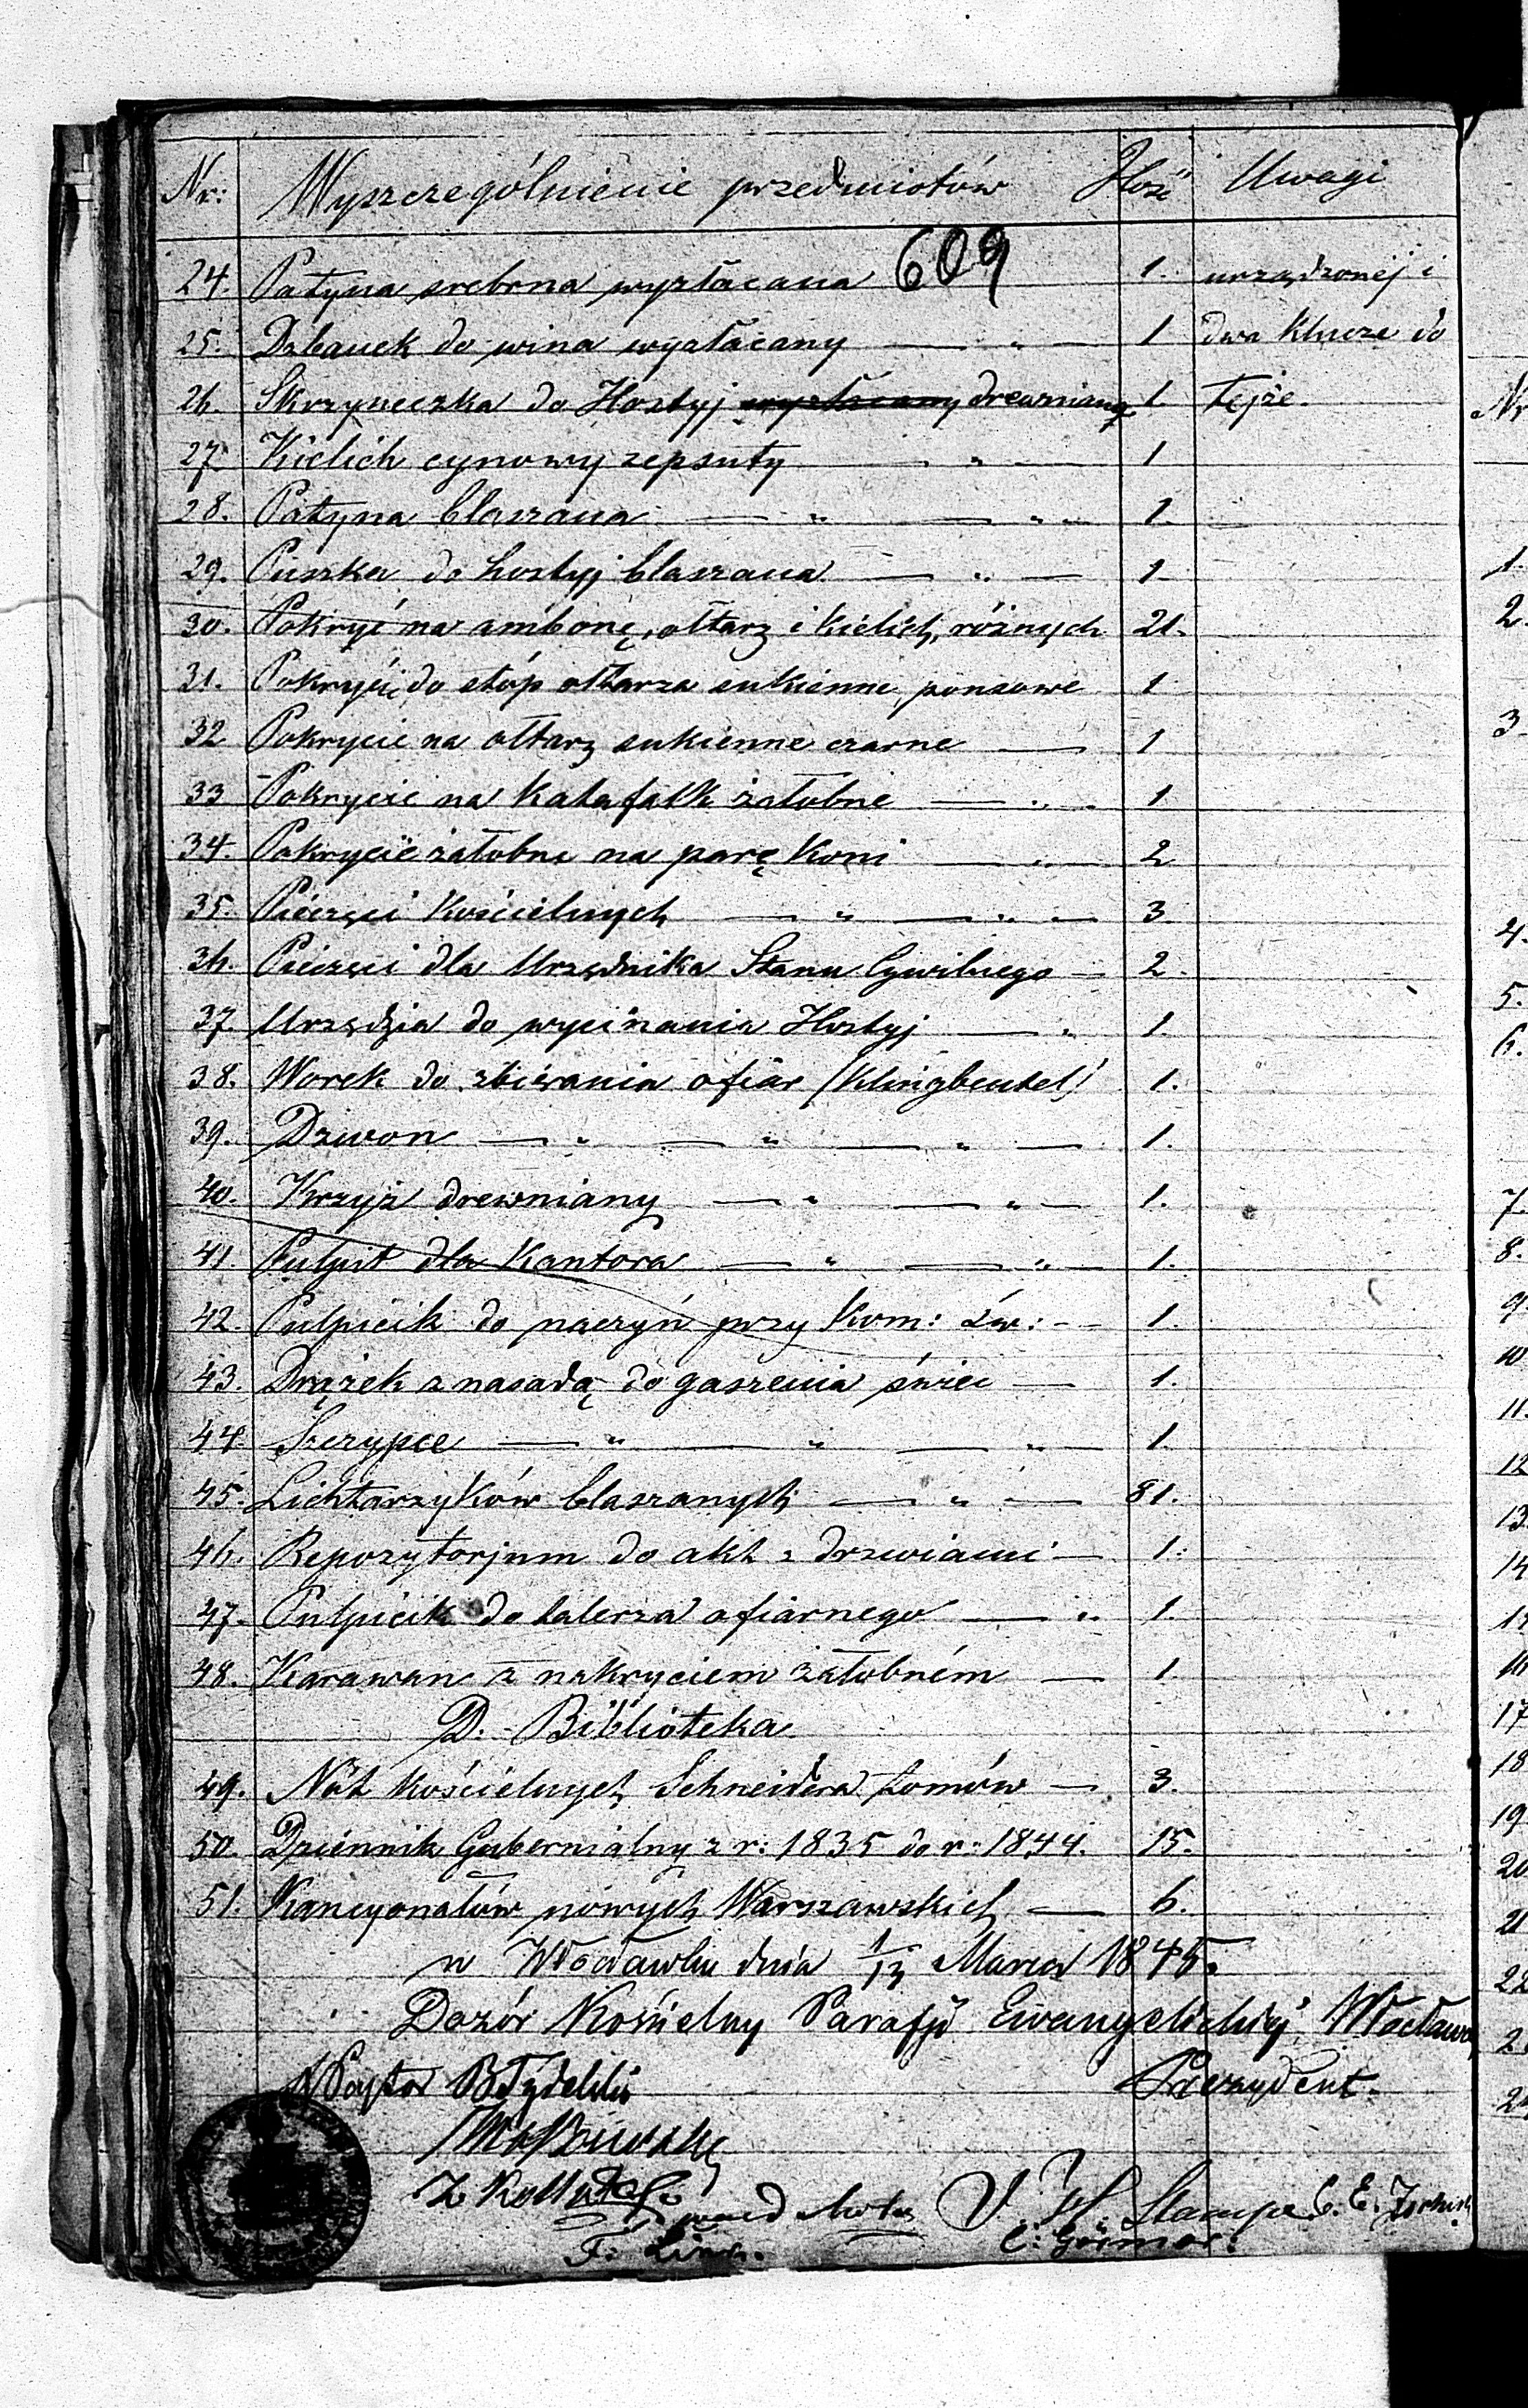 Nr: Wyszczególnienie przedmiotów Ilość Uwagi
609
24. Patyna srebrna wyzłacana 1. urządzonéj i
25. Dzbanek do wina wyzłacany — „ — 1 dwa klucze do
26. Skrzyneczka do Hostyj wyzłacany drewniana 1. tejże.
27. Kielich cynowy zepsuty — „ — 1
28. Patyna blaszana — „ — „ — 1.
29. Puszka do hostyj blaszana — „ — 1
30. Pokryć na ambonę, ołtarz i kielich, różnych 21.
31. Pokrycie do stóp ołtarza sukienne, ponsowe 1
32 Pokrycie na ołtarz sukienne czarne — 1
33 Pokrycie na katafalk żałobne — „ — 1
34. Pokrycie żałobne na parę koni — „ — 2
35. Pieczęci Kościelnych — „ — „ — 3
36. Pieczęci dla Urzędnika Stanu Cywilnego — 2.
37. Urzędzia do wycinania Hostyj — „ 1.
38. Worek do zbierania ofiar /Klingbeutel/ 1.
39. Dzwon — „ — „ — „ — 1.
40. Krzyż drewniany — „ — „ — 1.
41. Pulpit dla Kantora — „ — „ — 1.
42. Pulpicik do naczyń przy Kom: Św: - - 1.
43. Drążek z nasadą do gaszenia świec — 1.
44. Szczypce — „ — „ — „ — 1.
45. Lichtarzyków blaszanych — „ — 81.
46. Repozytorjum do akt z drzwiami — 1.
47. Pulpicik do talerza ofiarnego — „ 1.
48. Karawan z nakryciem żałobném — 1.
D. Biblioteka.
49. Nót Kościelnych Schneidera tomów — 3.
50. Dziennik Gubernialny z r: 1835 do r: 1844. 15.
51. Kancyonałów nowych Warszawskich — 6.
w Włocławku dnia 1/13 Marca 1845.
Dozór Kościelny Parafji Ewangelickiej
Pastor Prezydent.
F.
C. E.